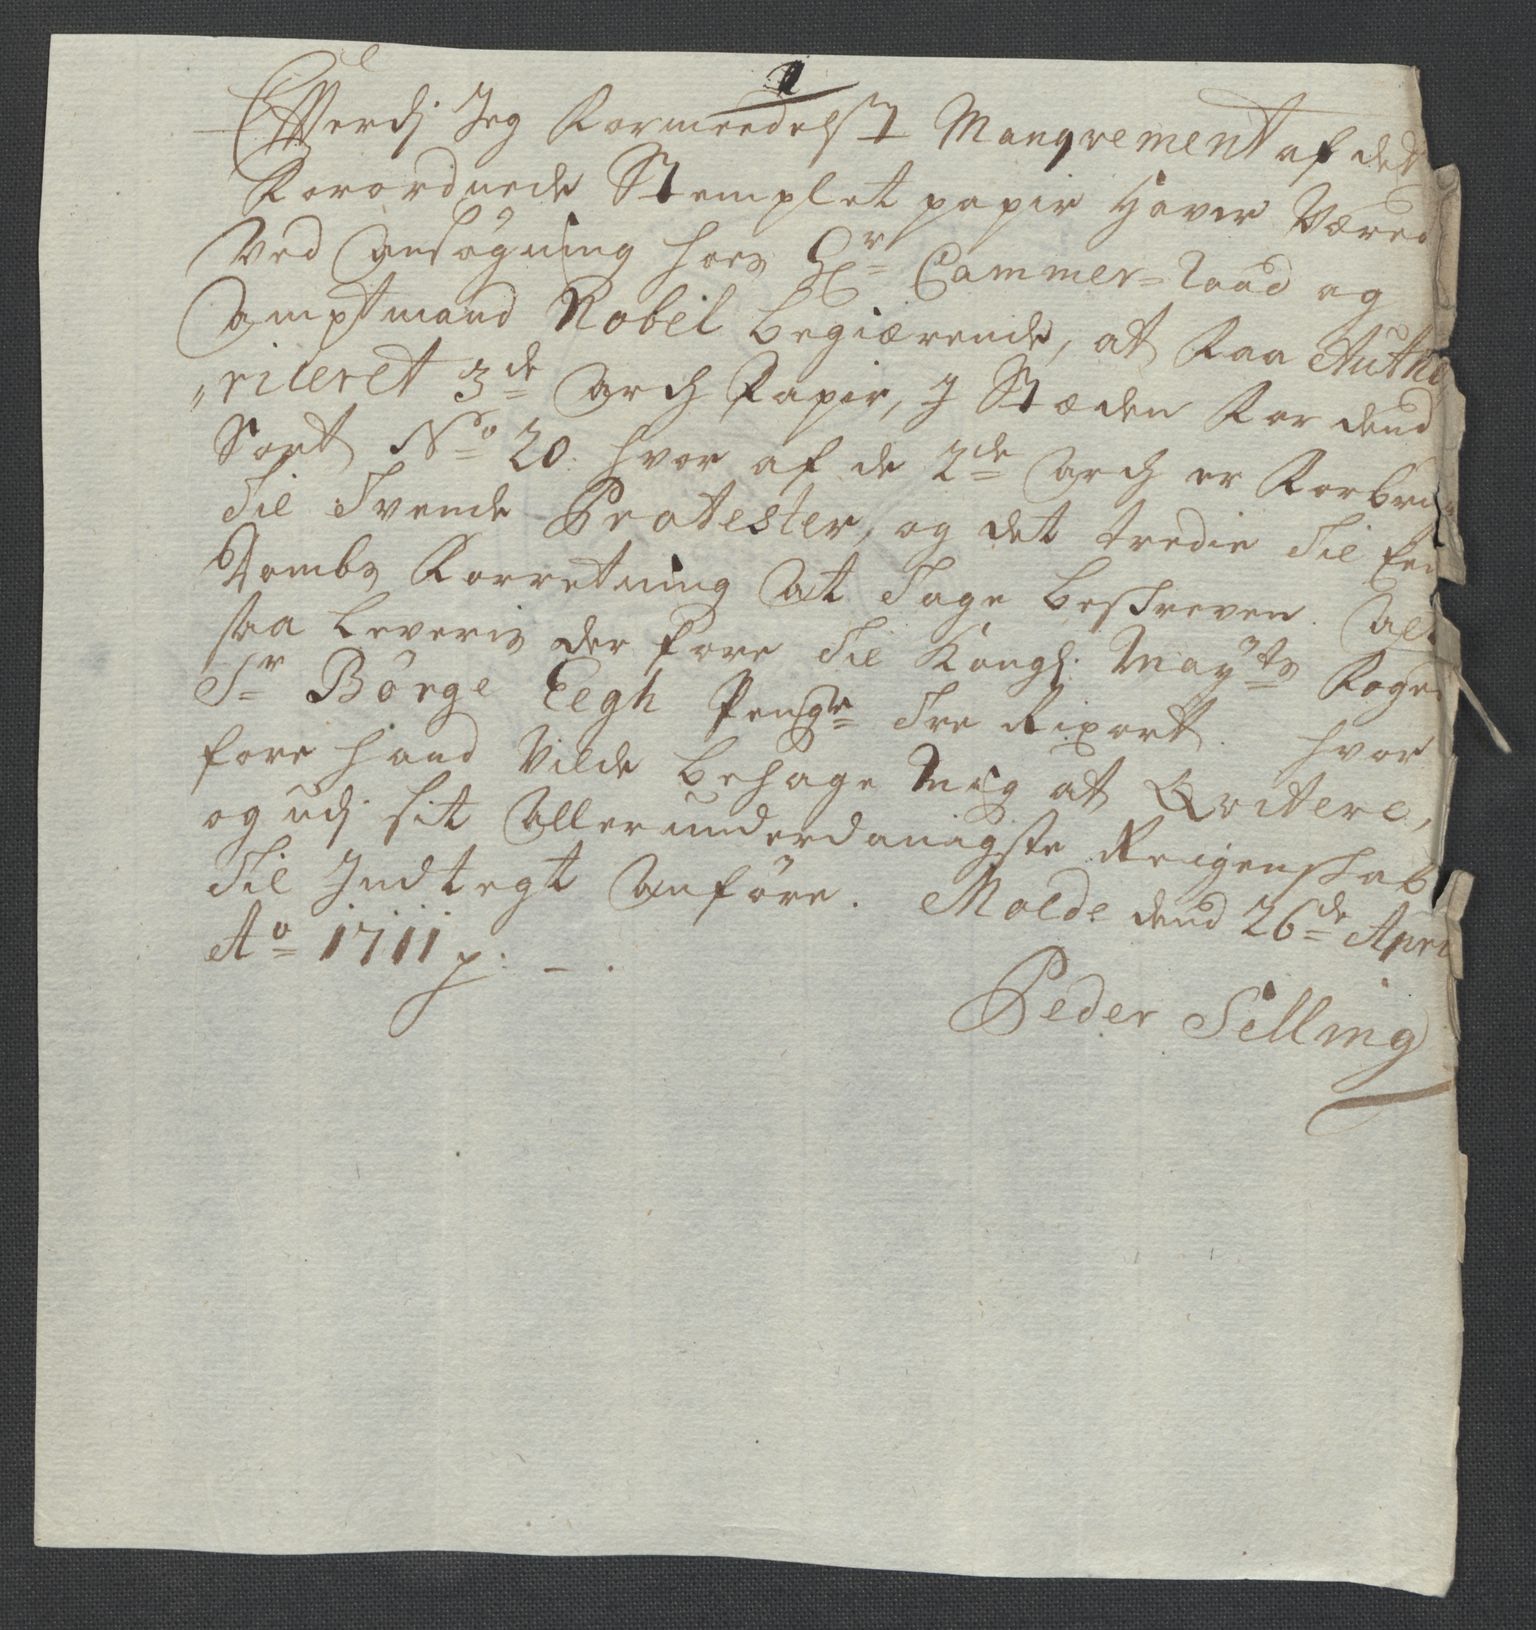 1
Efterdj Jeg Formeedelst Manqvement af det
Forordnede Stemplet papir Haver Været
Ved Ansøgning hoes Hr Cammer=Raad og
Amptmand Nobel begiærende, at Faa Autho
„riceret 3de Arch Papir, J Stæden For dend
Sort No 20. hvor af de 2de Arch er Forbru
Til Tvende Protester, og det tredie Til en
Dombs Forretning At Tage beskreven. Alt
saa Leveris der fore Til Kongl. Mayts Foget
Sr Børge Eegh Penge Tre Rixort. hvor
fore hand Vilde behage Mig at Qvitere,
og udj sit Allerunderdanigste Reigenskab
Til Indtegt Anføre. Molde dend 26de Apri
Ao 1711 p: - .
Peder Selling